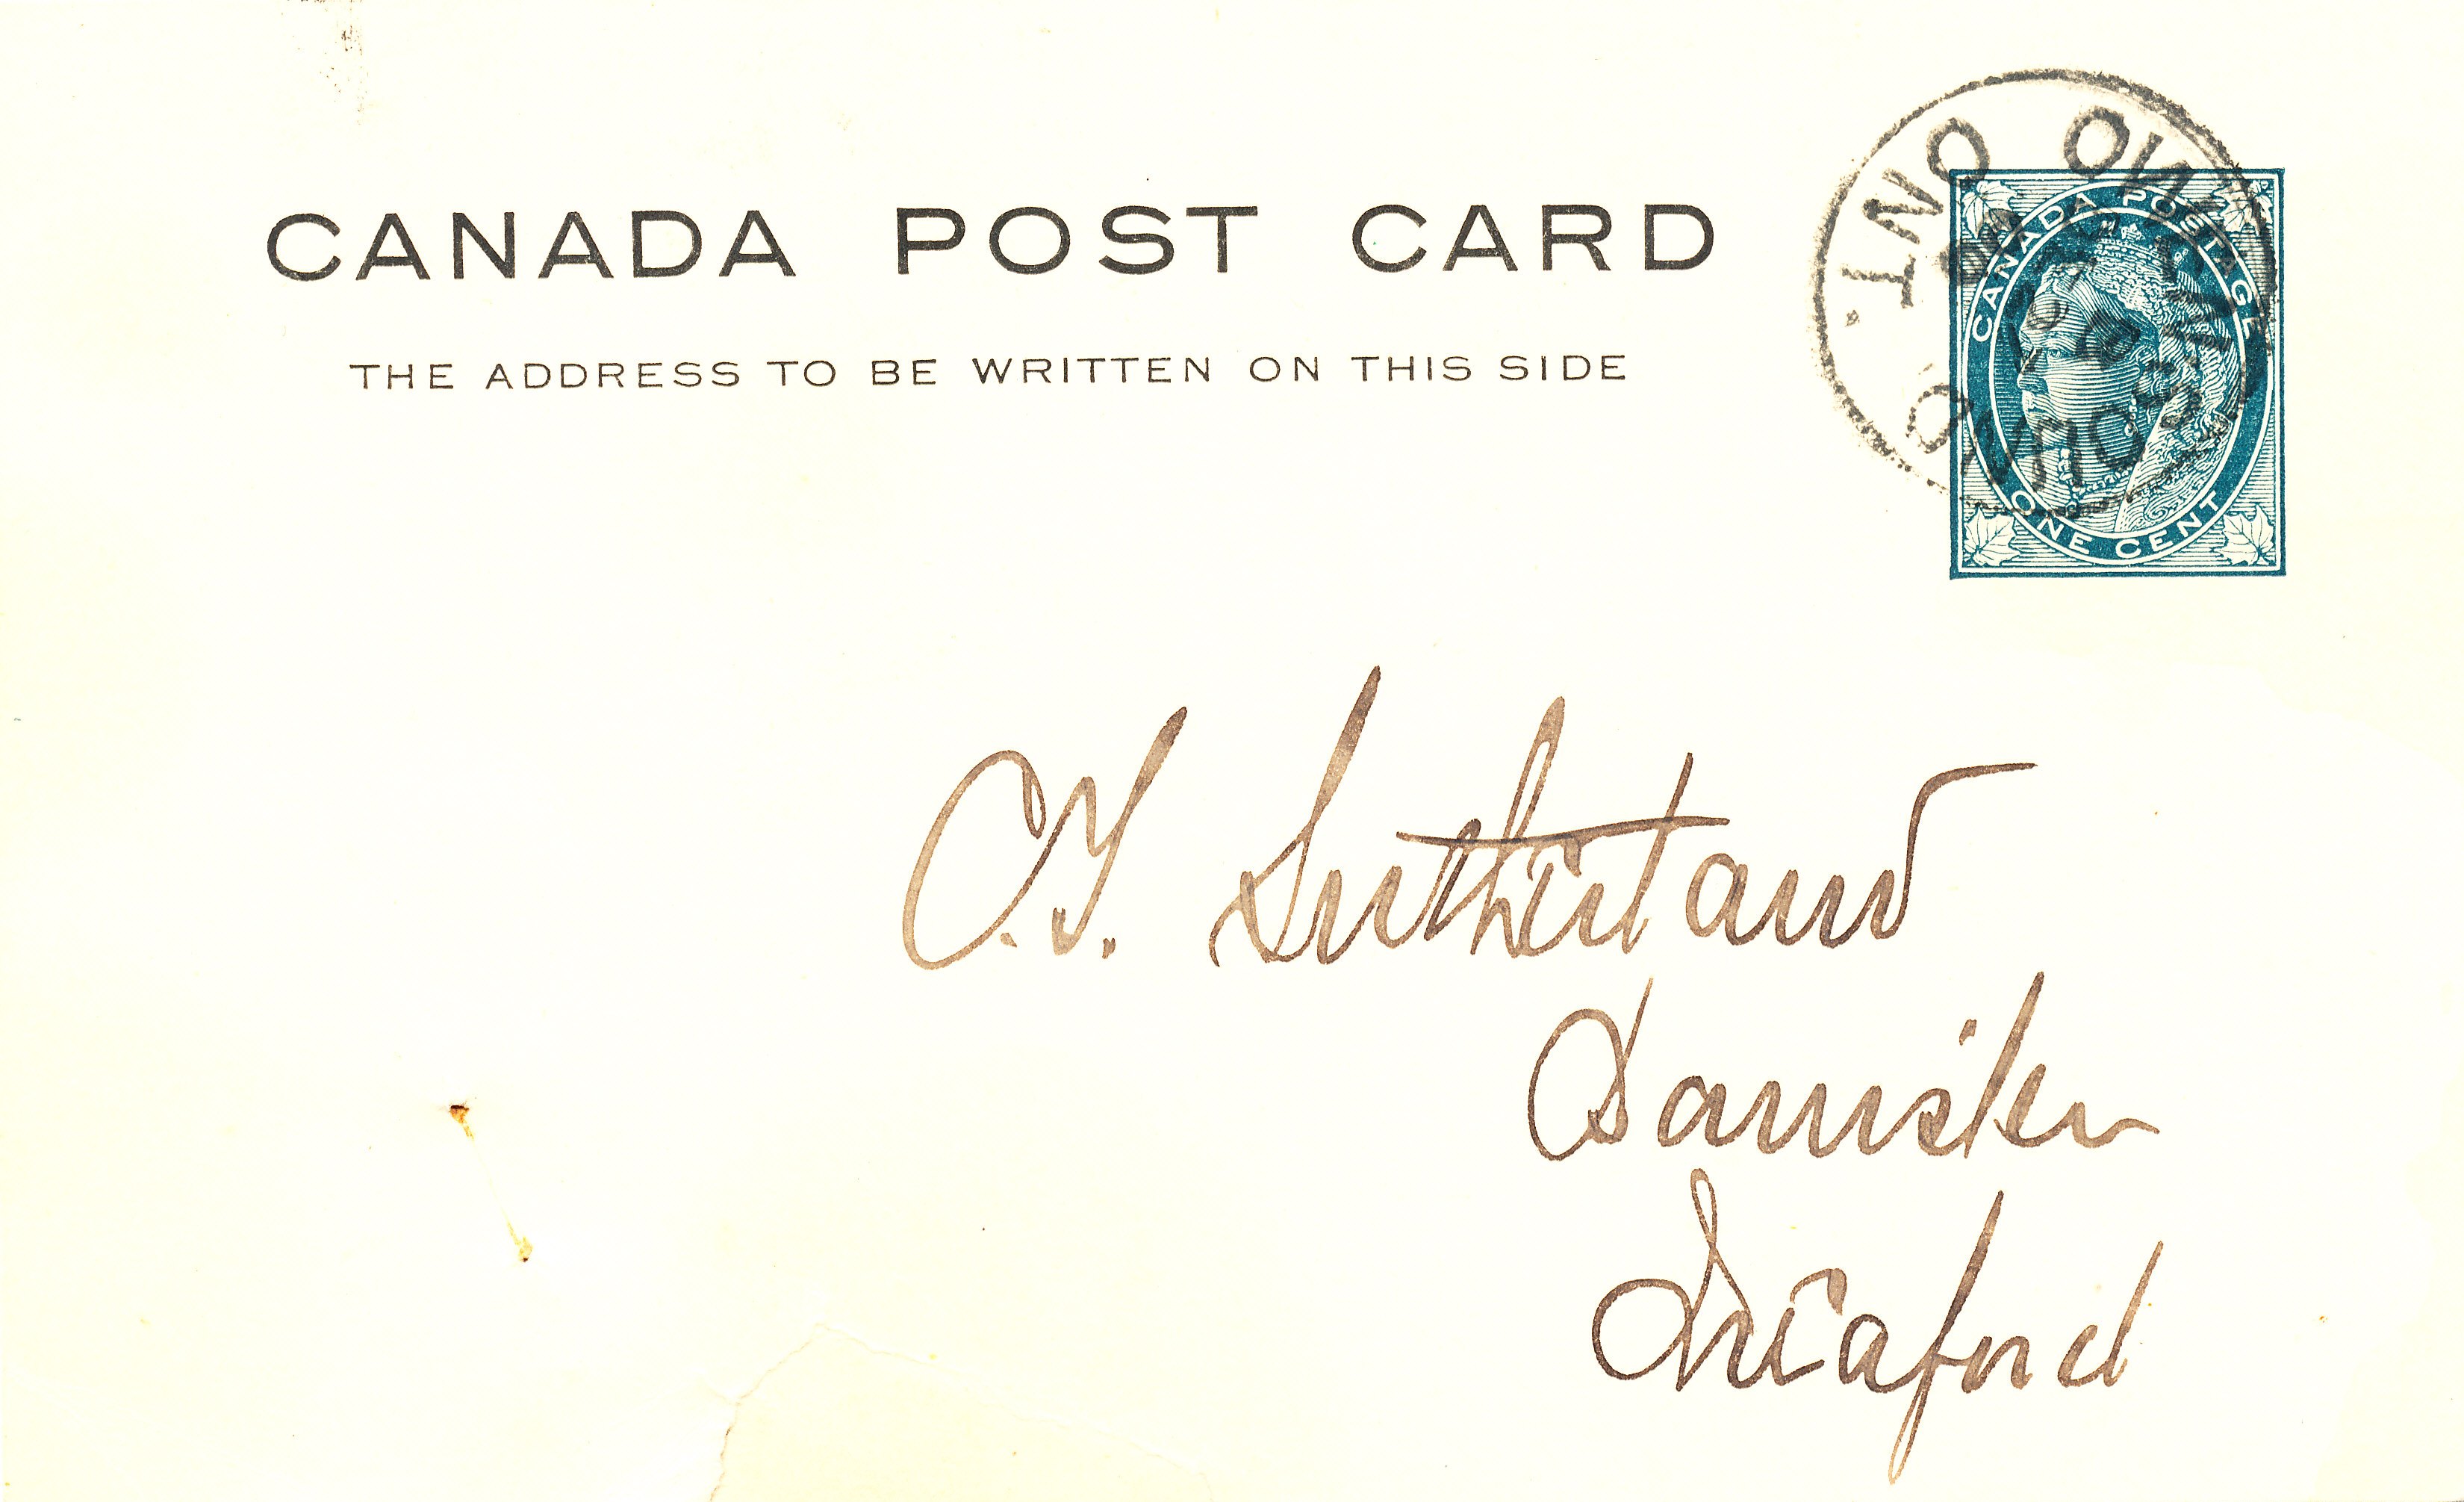 CANADA POST CARD
THE ADDRESS TO BE WRITTEN ON THIS SIDE
CANADA POSTAGE
ONE CENT
OWEN SOUND ONT.
C.T. Sutherland
Barrister
Meaford